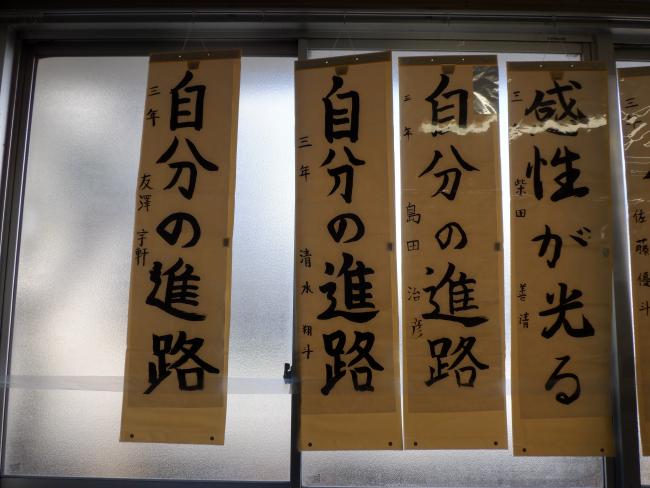 自分の進路
三年
友澤 宇軒
自分の進路
三年
清水 翔斗
自分の進路
三年
島田 治彦
感性が光る
三
柴田 善清
三
佐藤優斗